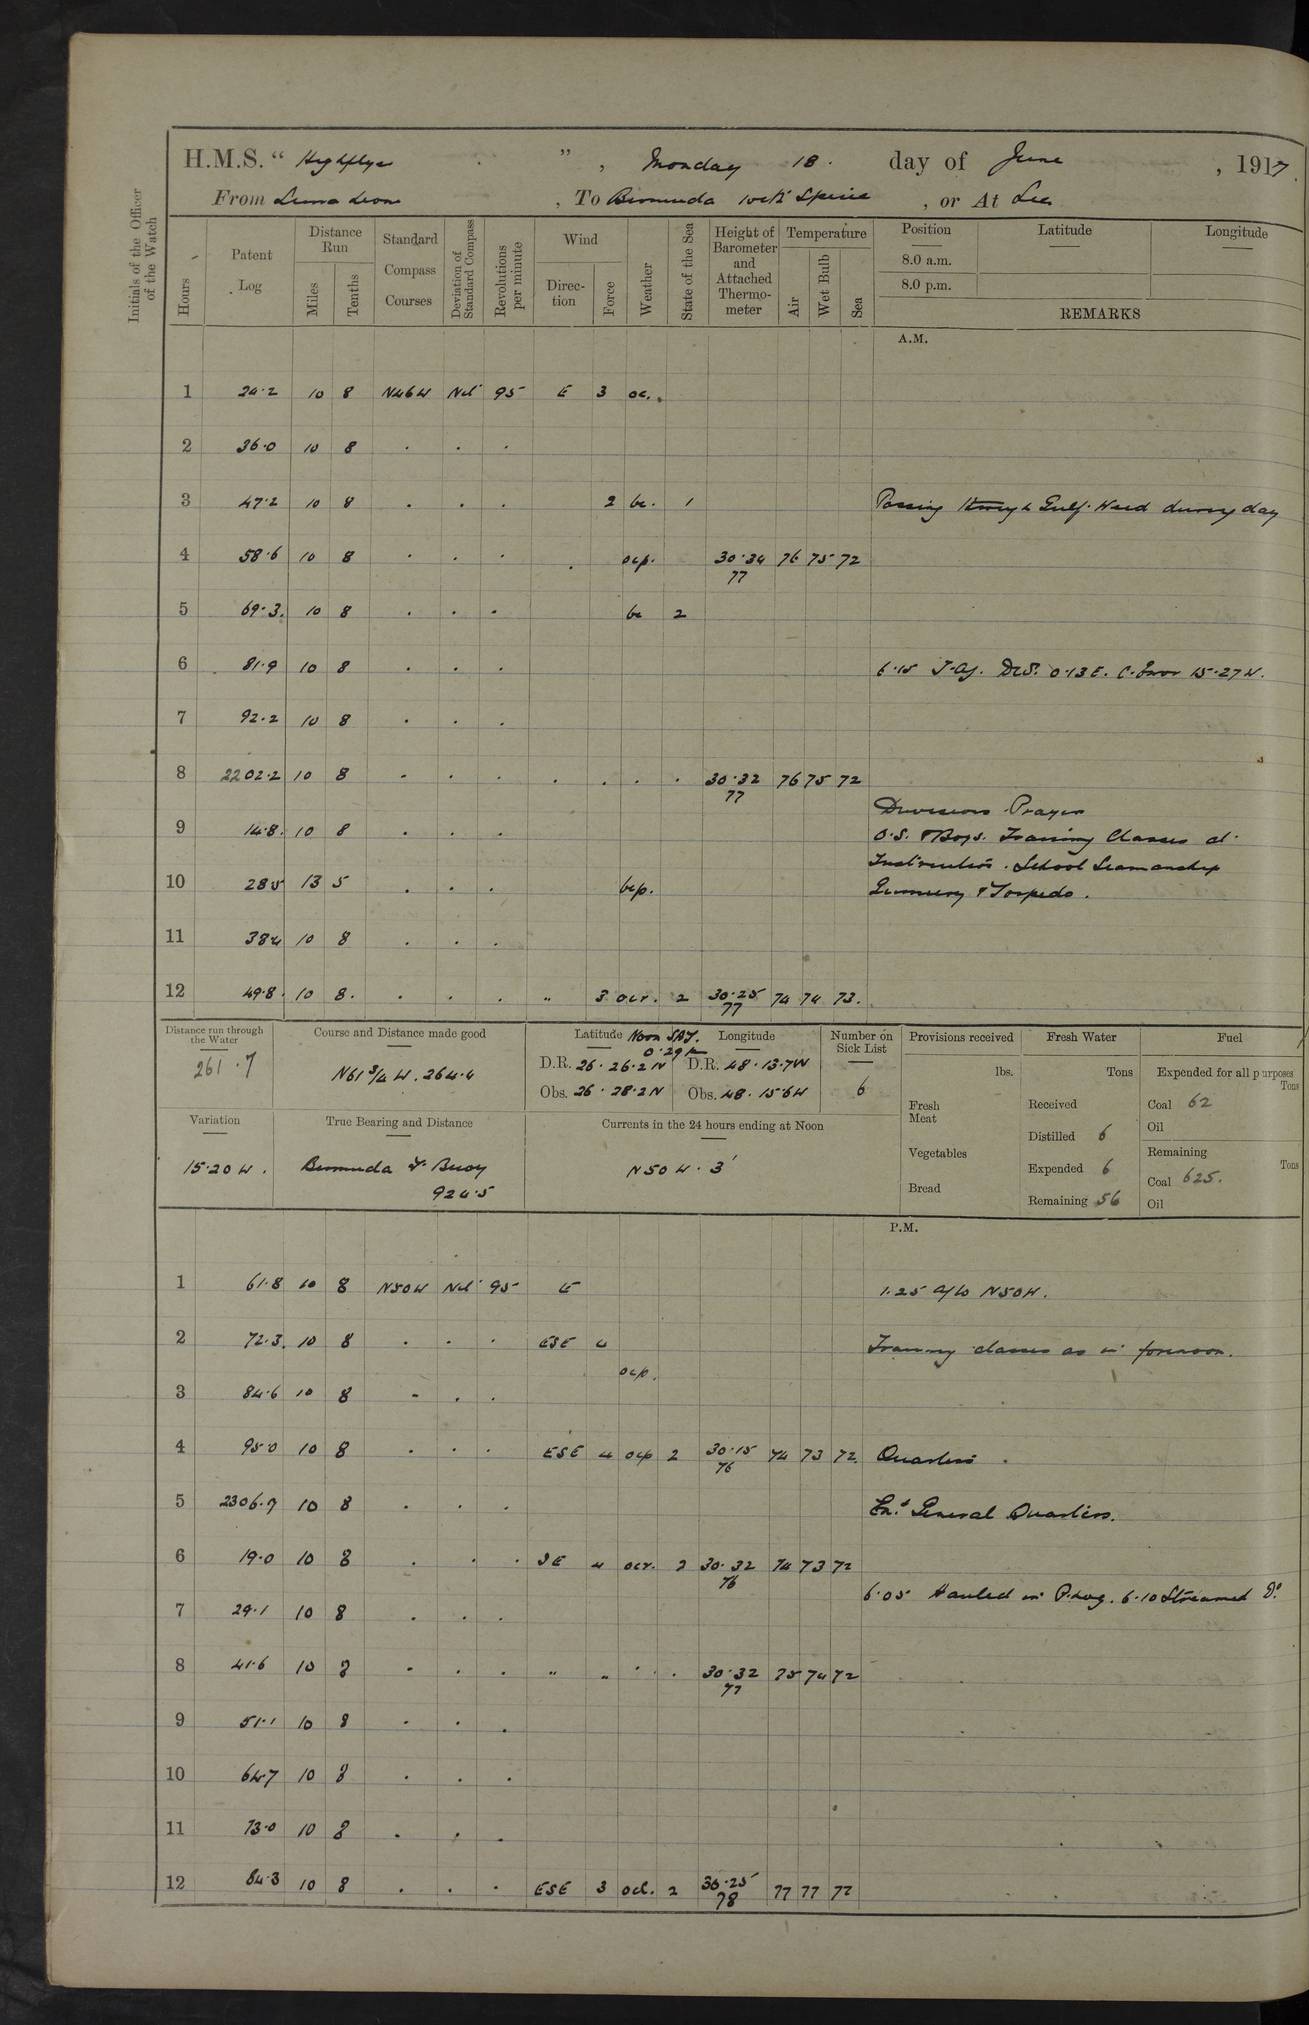 H.M.S. " Highflyer " , Monday 18. day of June , 1917.
From Sierra Leone , To Bermuda with Specie , or At Sea
Initials of the Officer of the Watch
Hours
Patent Log
Distance Run
Miles
Tenths
Standard Compass Courses
Deviation of Standard Compass
Revolutions per minute
Wind
Direction
Force
Weather
State of the Sea
Height of Barometer and Attached Thermometer
Temperature
Air
Wet Bulb
Sea
Position Latitude Longitude
8.0 a.m.
8.0 p.m.
REMARKS
A.M.
1 24.2 10 8 N46W Nil 95 E 3 oc.
2 36.0 10 8 . . .
3 47.2 10 8 . . . 2 bc. 1 Passing through Gulf Weed during day
4 58.6 10 8 . . . . ocp. 30.34 77 76 75 72
5 69.3. 10 8 . . . bc 2
6 81.9 10 8 . . . 6.15 Dev. 0.13E. C. Error 15.27W.
7 92.2 10 8 . . .
8 2202.2 10 8 . . . . . . . 30.32 77 76 75 72
Divisions Prayers
9 14.8. 10 8 . . . O.S. & Boys. Training Classes at
Instruction. School Seamanship
10 285 13 5 . . . bcp. Gunnery & Torpedo.
11 384 10 8 . . .
12 49.8. 10 8. . . . " 3 ocr. 2 30.25 77 74 74 73.
Distance run through the Water
261.7
Course and Distance made good
N61 3/4 W. 264.4
Latitude Noon Longitude
D.R. 26.26.2N D.R. 48.13.7W
Obs. 26.28.2N Obs. 48.15.6W
Number on Sick List
6
Provisions received
lbs.
Fresh Meat
Vegetables
Bread
Fresh Water
Tons
Received
Distilled 6
Expended 6
Remaining 56
Fuel
Expended for all purposes
Tons
Coal 62
Oil
Remaining
Tons
Coal 625.
Oil
Variation
15.20W.
True Bearing and Distance
Bermuda Buoy
924.5
Currents in the 24 hours ending at Noon
N50W. 3'
P.M.
1 61.8 10 8 N50W Nil 95 E 1.25 a/c N50W.
2 72.3. 10 8 . . . ESE 4 Training classes as in forenoon.
ocp.
3 84.6 10 8 - . .
4 95.0 10 8 . . . ESE 4 ocp 2 30.15 76 74 73 72. Quarters.
5 2306.9 10 8 . . . General Quarters.
6 19.0 10 8 . . . SE 4 ocr. 2 30.32 76 74 73 72
6.05 Hauled in P. Log. 6.10 Streamed Do
7 29.1 10 8 . . .
8 41.6 10 8 . . . " " . . . 30.32 77 75 74 72
9 51.1 10 8 . . .
10 64.7 10 8 . . .
11 73.0 10 8 . . .
12 84.3 10 8 . . . ESE 3 2 30.25 78 77 77 72